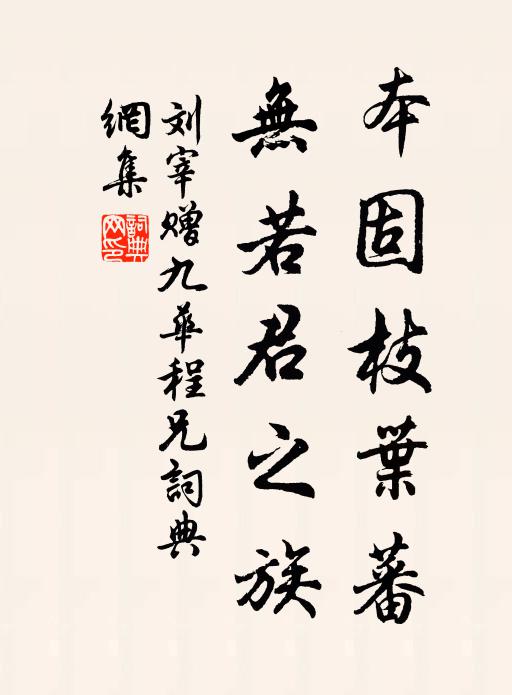 本固枝葉蕃
無若君之族
刘宰赠九華程兄詞典
網集
詞典
网印